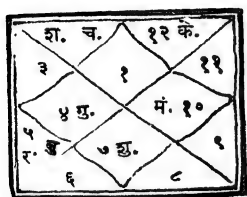 श. च. १२ के.
३ १ ११
४ गु. मं. १०
५ र. बु ७ शु. ९
६ ८